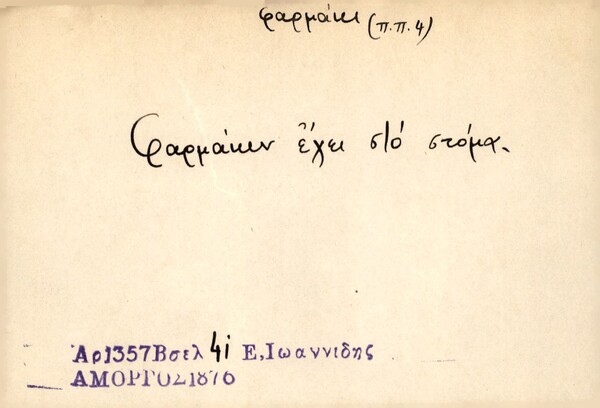 φαρμάκι (π.π.4)
Φαρμάκιν ἔχει στό στόμα.
Αρ1357Βσελ 41 Ε,Ιωαννιδης
ΑΜΟΡΓΟΣ1876